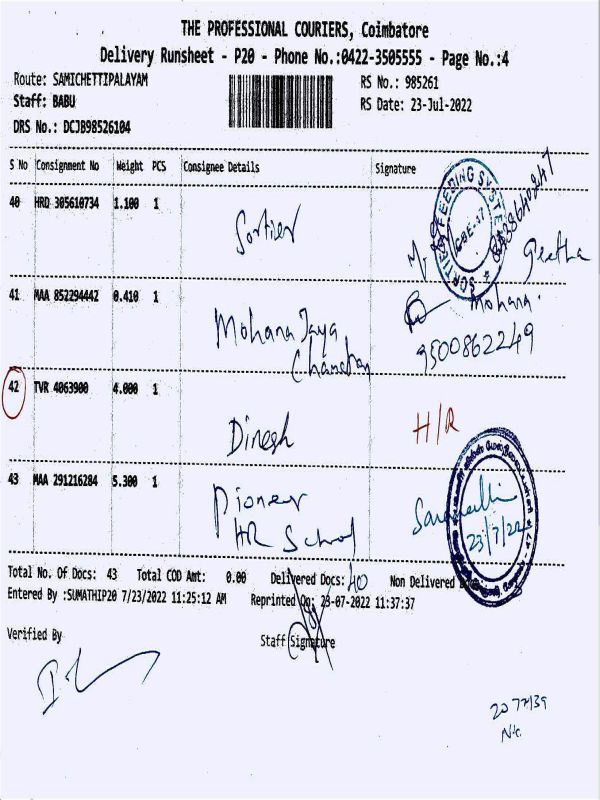 THE PROFESSIONAL COURIERS, Coimbatore
Delivery Runsheet - P20 - Phone No.:0422-3505555 - Page No.:4
Route: SAMICHETTIPALAYAM
RS No.: 985261
Staff: BABU
RS Date: 23-Jul-2022
DRS No.: DCJB98526104
S No Consignment No Weight PCS Consignee Details Signature
40 HRD 305610734 1.100 1
Sortier
Geetha
41 MAA 852294442 0.410 1
Mohana
Mohana Jaya
9500862249
42 TVR 4063900 4.000 1
Dinesh
H/R
43 MAA 291216284 5.300 1
Pioneer
HR School
23/7/22
Total No. Of Docs: 43 Total COD Amt: 0.00 Delivered Docs: 40 Non Delivered
Entered By :SUMATHIP20 7/23/2022 11:25:12 AM Reprinted On: 23-07-2022 11:37:37
Verified By
Staff Signature